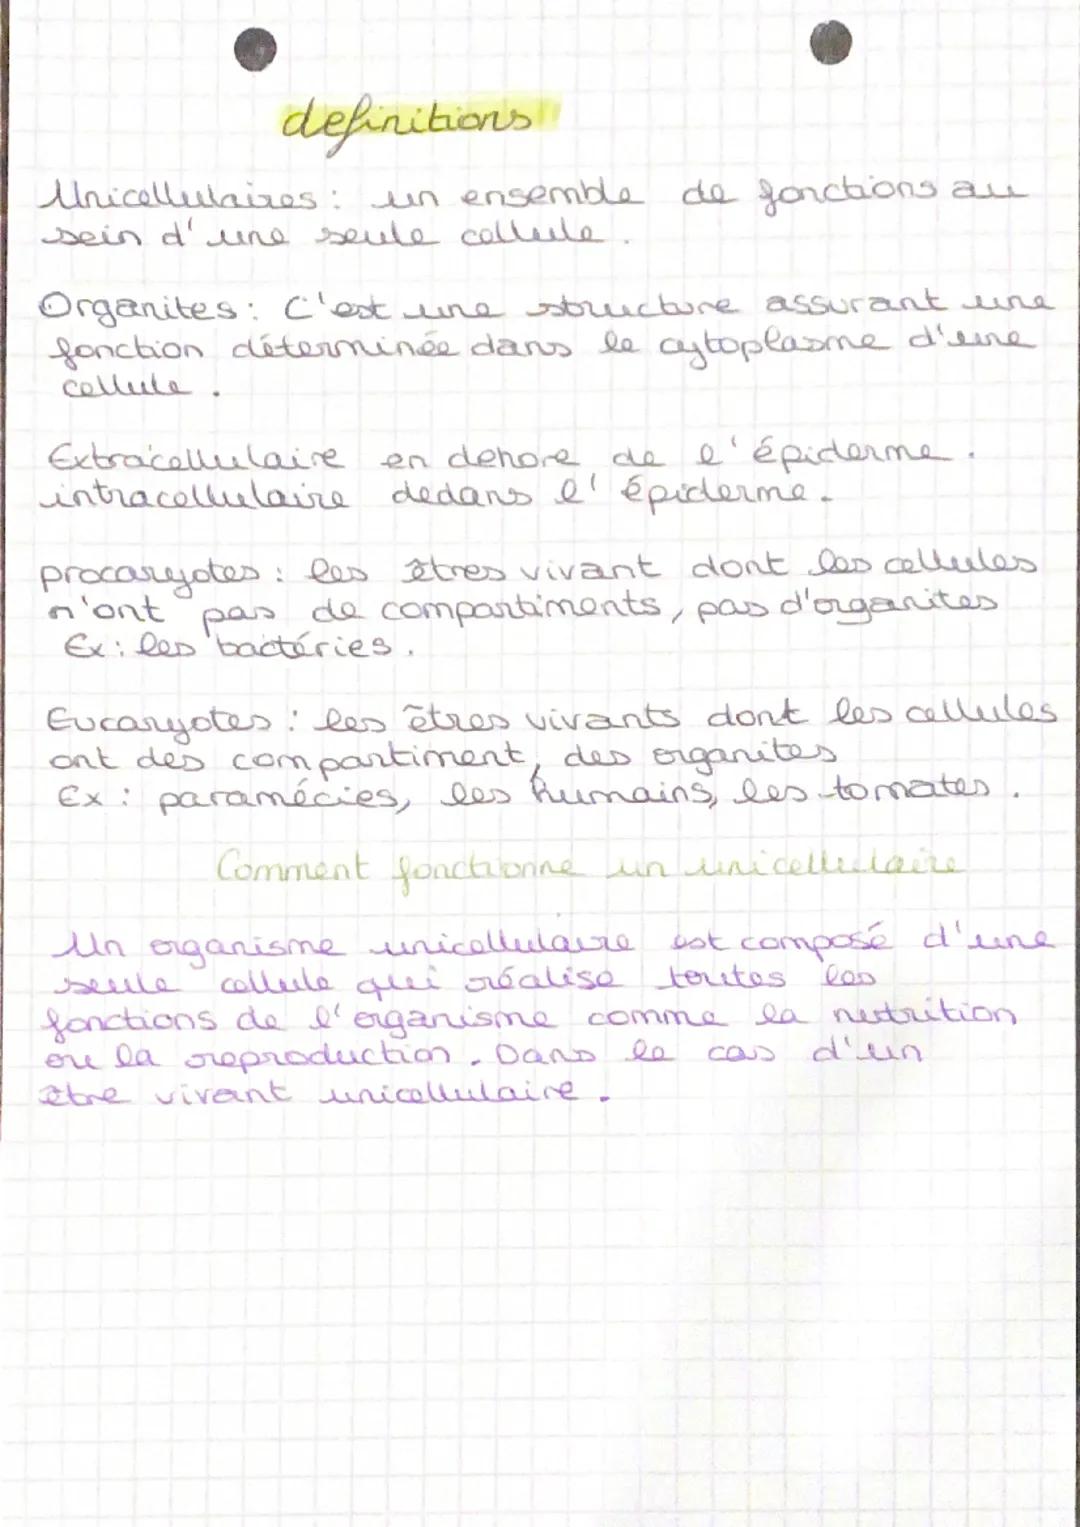 definitions
Unicellulaires : un ensemble de fonctions au
sein d'une seule cellule.
Organites : C'est une structure assurant une
fonction déterminée dans le cytoplasme d'une
cellule.
Extracellulaire en dehore de l'épiderme.
intracellulaire dedans l'épiderme.
procaryotes : les êtres vivant dont les cellules
n'ont pas de compartiments, pas d'organites
Ex : les bactéries.
Eucaryotes : les êtres vivants dont les cellules
ont des compartiment, des organites
Ex : paramécies, les humains, les tomates.
Comment fonctionne un unicellulaire
Un organisme unicellulaire est composé d'une
seule cellule qui réalise toutes les
fonctions de l'organisme comme la nutrition
ou la reproduction. Dans le cas d'un
être vivant unicellulaire.